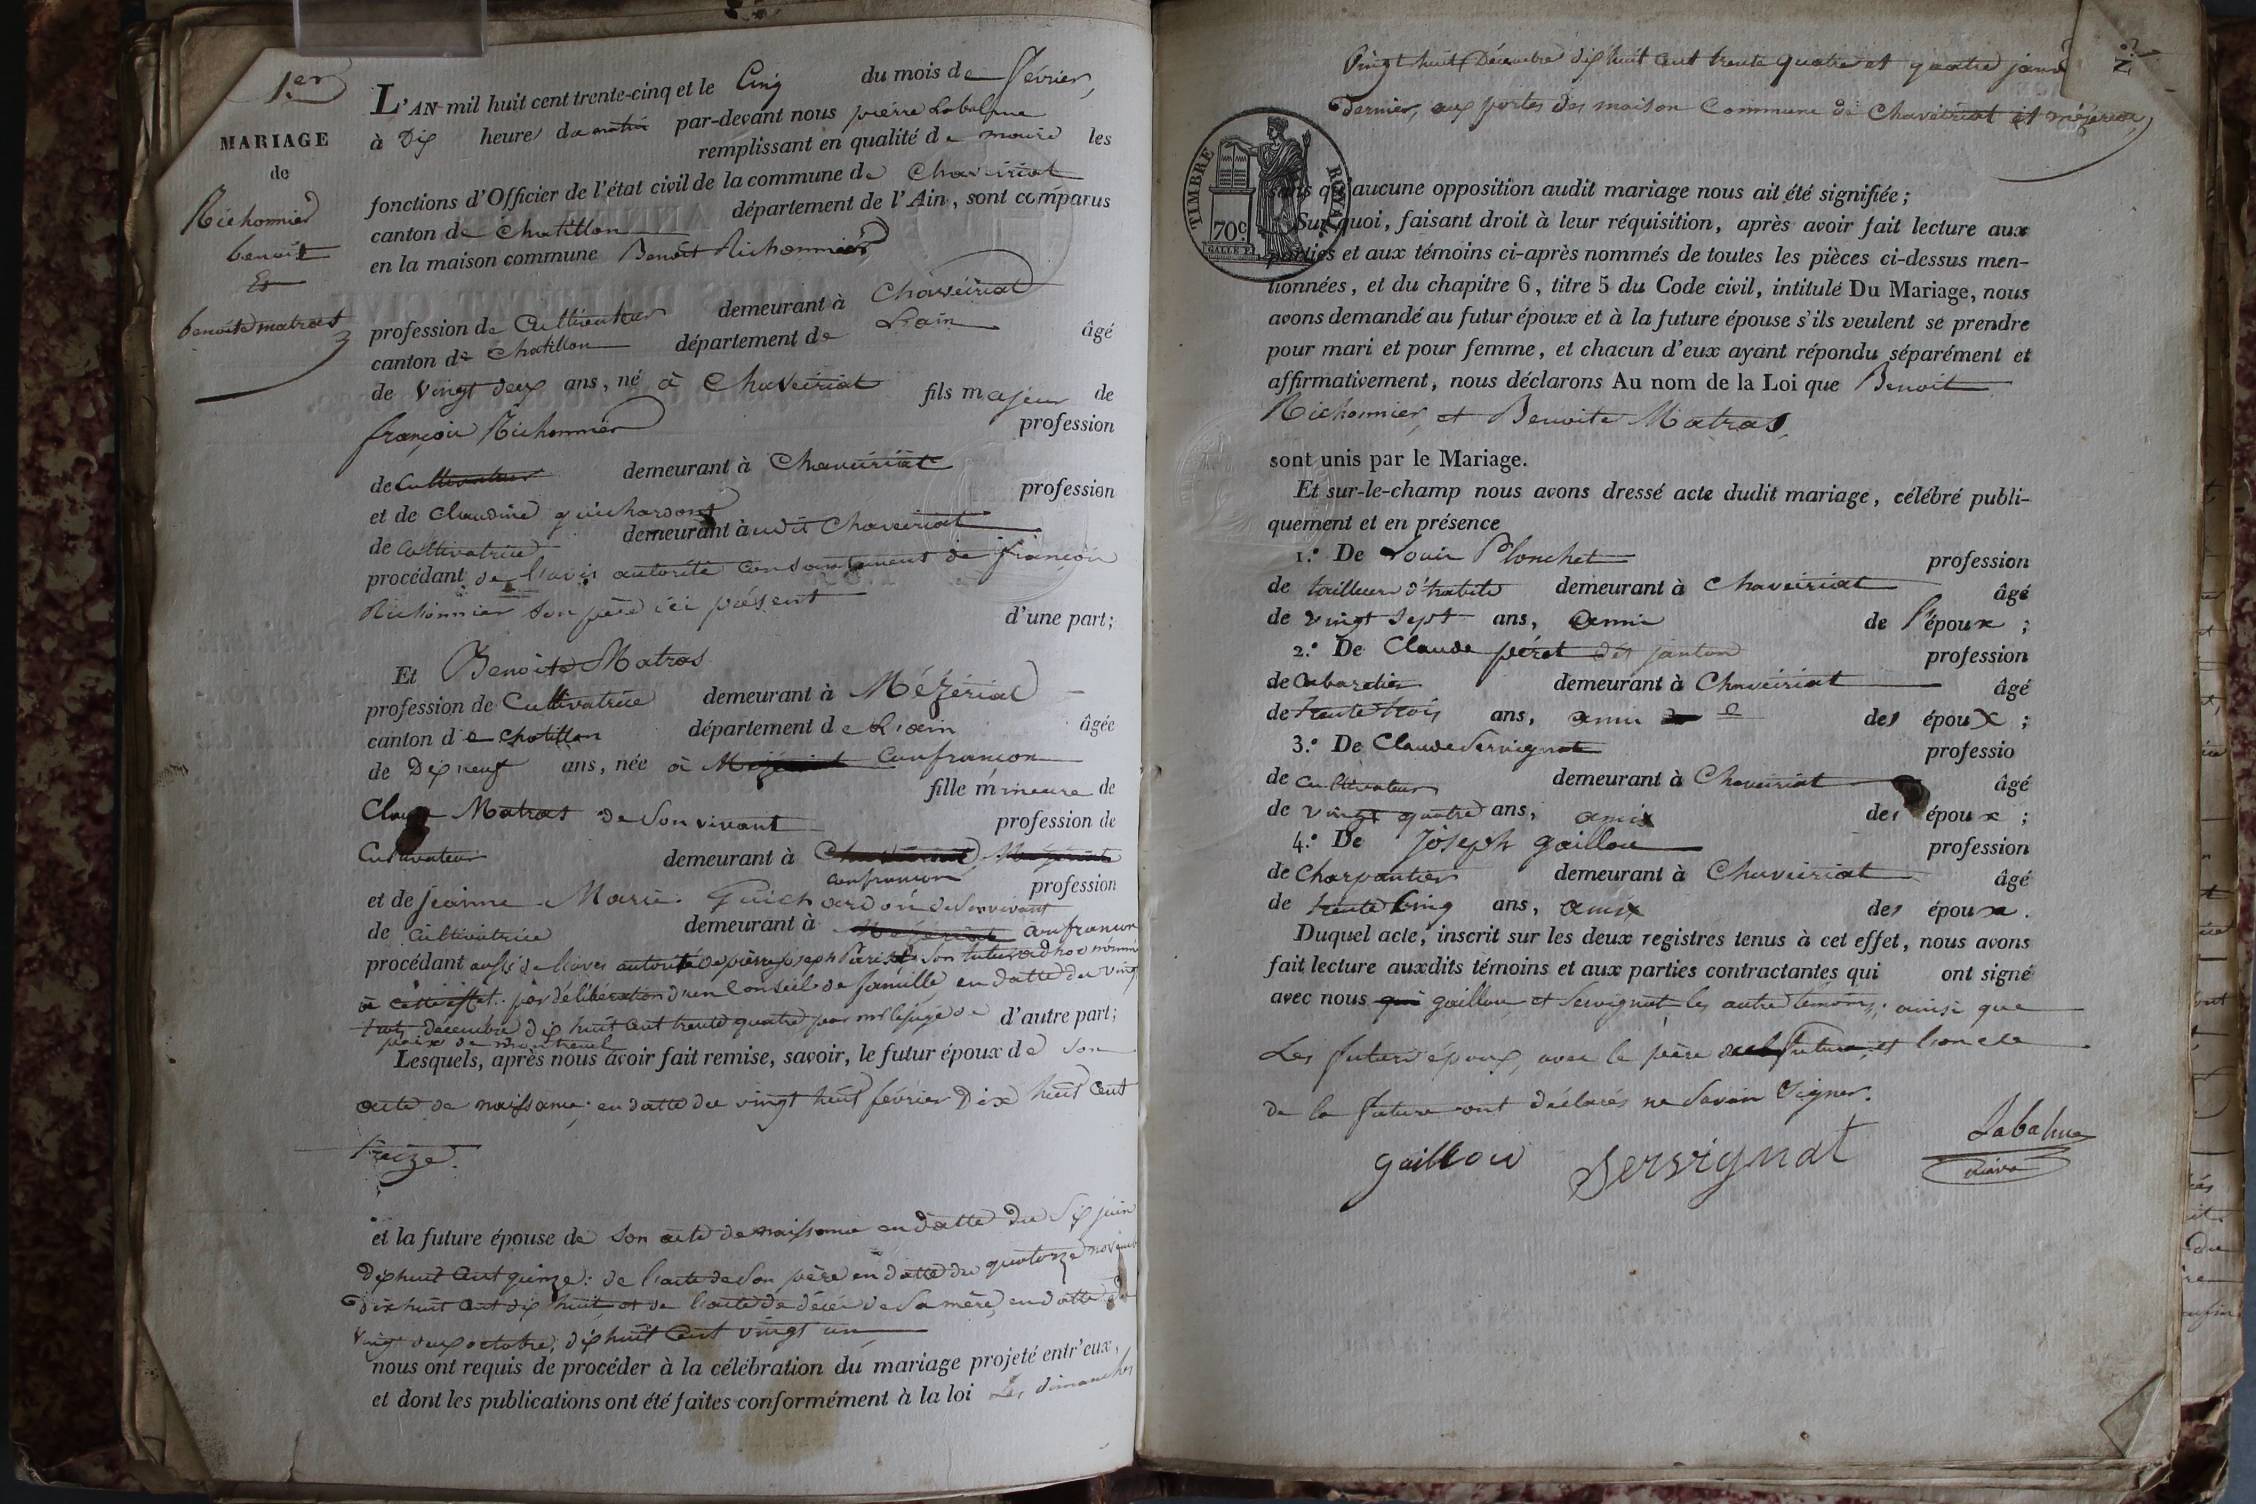 1.er
MARIAGE
de
Richonnier
benoit
Et
benoite matras
L'AN mil huit cent trente-cinq et le Cinq du mois de février,
à Dix heures du matin par-devant nous pierre Labalme
remplissant en qualité de maire les
fonctions d'Officier de l'état civil de la commune de Chaveiriat
canton de Chatillon département de l'Ain, sont comparus
en la maison commune Benoit Richonnier
profession de Cultivateur demeurant à Chaveiriat
canton de Chatillon département de L'ain âgé
de vingt deux ans, né à Chaveiriat fils majeur de
françois Richonnier profession
de Cultivateur demeurant à Chaveiriat
et de Claudine guichardon profession
de Cultivatrice demeurant à udit Chaveiriat
procédant de l'avis autorité consentement de françois
Richonnier son père ici présent d'une part;
Et Benoite Matras
profession de Cultivatrice demeurant à Mézériat
canton de Chatillon département de L'ain âgée
de Dix neuf ans, née à Mézériat Confrançon
fille mineure de
Claude Matras de son vivant profession de
Cultivateur demeurant à Chaveiriat Mézériat
Confrançon
et de jeanne Marie Guichardon de son vivant profession
de Cultivatrice demeurant à Mézériat Confrançon
procédant aussi de l'avis autorité de pierre joseph son tuteur ad hoc nommé
à cet effet par délibération d'un Conseil de famille, en datte du vingt
huit décembre dix huit cent trente quatre par mr le juge de d'autre part;
paix de montrevel
Lesquels, après nous avoir fait remise, savoir, le futur époux de son
acte de naissance, en datte du vingt huit février Dix huit cent
treize.
et la future épouse de son acte de naissance en datte du Six juin
dix huit cent quinze: de l'acte de son père en datte du quatorze novembre
dix huit cent dix huit, et de l'acte de décès de sa mère, en datte du
vingt deux octobre, dix huit cent vingt un
nous ont requis de procéder à la célébration du mariage projeté entr'eux,
et dont les publications ont été faites conformément à la loi Les dimanches
N.o
Vingt huit Décembre dix huit cent trente quatre et quatre janv
dernier, aux portes des maison Commune de Chaveiriat et mézériat,
TIMBRE ROYAL
70c
sans qu'aucune opposition audit mariage nous ait été signifiée;
Sur quoi, faisant droit à leur réquisition, après avoir fait lecture aux
parties et aux témoins ci-après nommés de toutes les pièces ci-dessus men-
tionnées, et du chapitre 6, titre 5 du Code civil, intitulé Du Mariage, nous
avons demandé au futur époux et à la future épouse s'ils veulent se prendre
pour mari et pour femme, et chacun d'eux ayant répondu séparément et
affirmativement, nous déclarons Au nom de la Loi que Benoit
Richonnier, et Benoite Matras,
sont unis par le Mariage.
Et sur-le-champ nous avons dressé acte dudit mariage, célébré publi-
quement et en présence
1.° De Louis Plonchet profession
de tailleur d'habits demeurant à Chaveiriat âgé
de vingt sept ans, ami de l'époux;
2.° De Claude péret dit janton profession
de Cabaretier demeurant à Chaveiriat âgé
de trente trois ans, ami des époux;
3.° De Claude Servignat professio
de Cultivateur demeurant à Chaveiriat âgé
de vingt quatre ans, amis des époux;
4.° De Joseph gaillou profession
de Charpentier demeurant à Chaveiriat âgé
de trente cinq ans, amis des époux.
Duquel acte, inscrit sur les deux registres tenus à cet effet, nous avons
fait lecture auxdits témoins et aux parties contractantes qui ont signé
avec nous qui gaillou et Servignat les autre témoins, ainsi que
Les futurs époux, avec le père et l'oncle
de la future ont déclarés ne savoir signer.
gaillou Servignat Labalme
maire